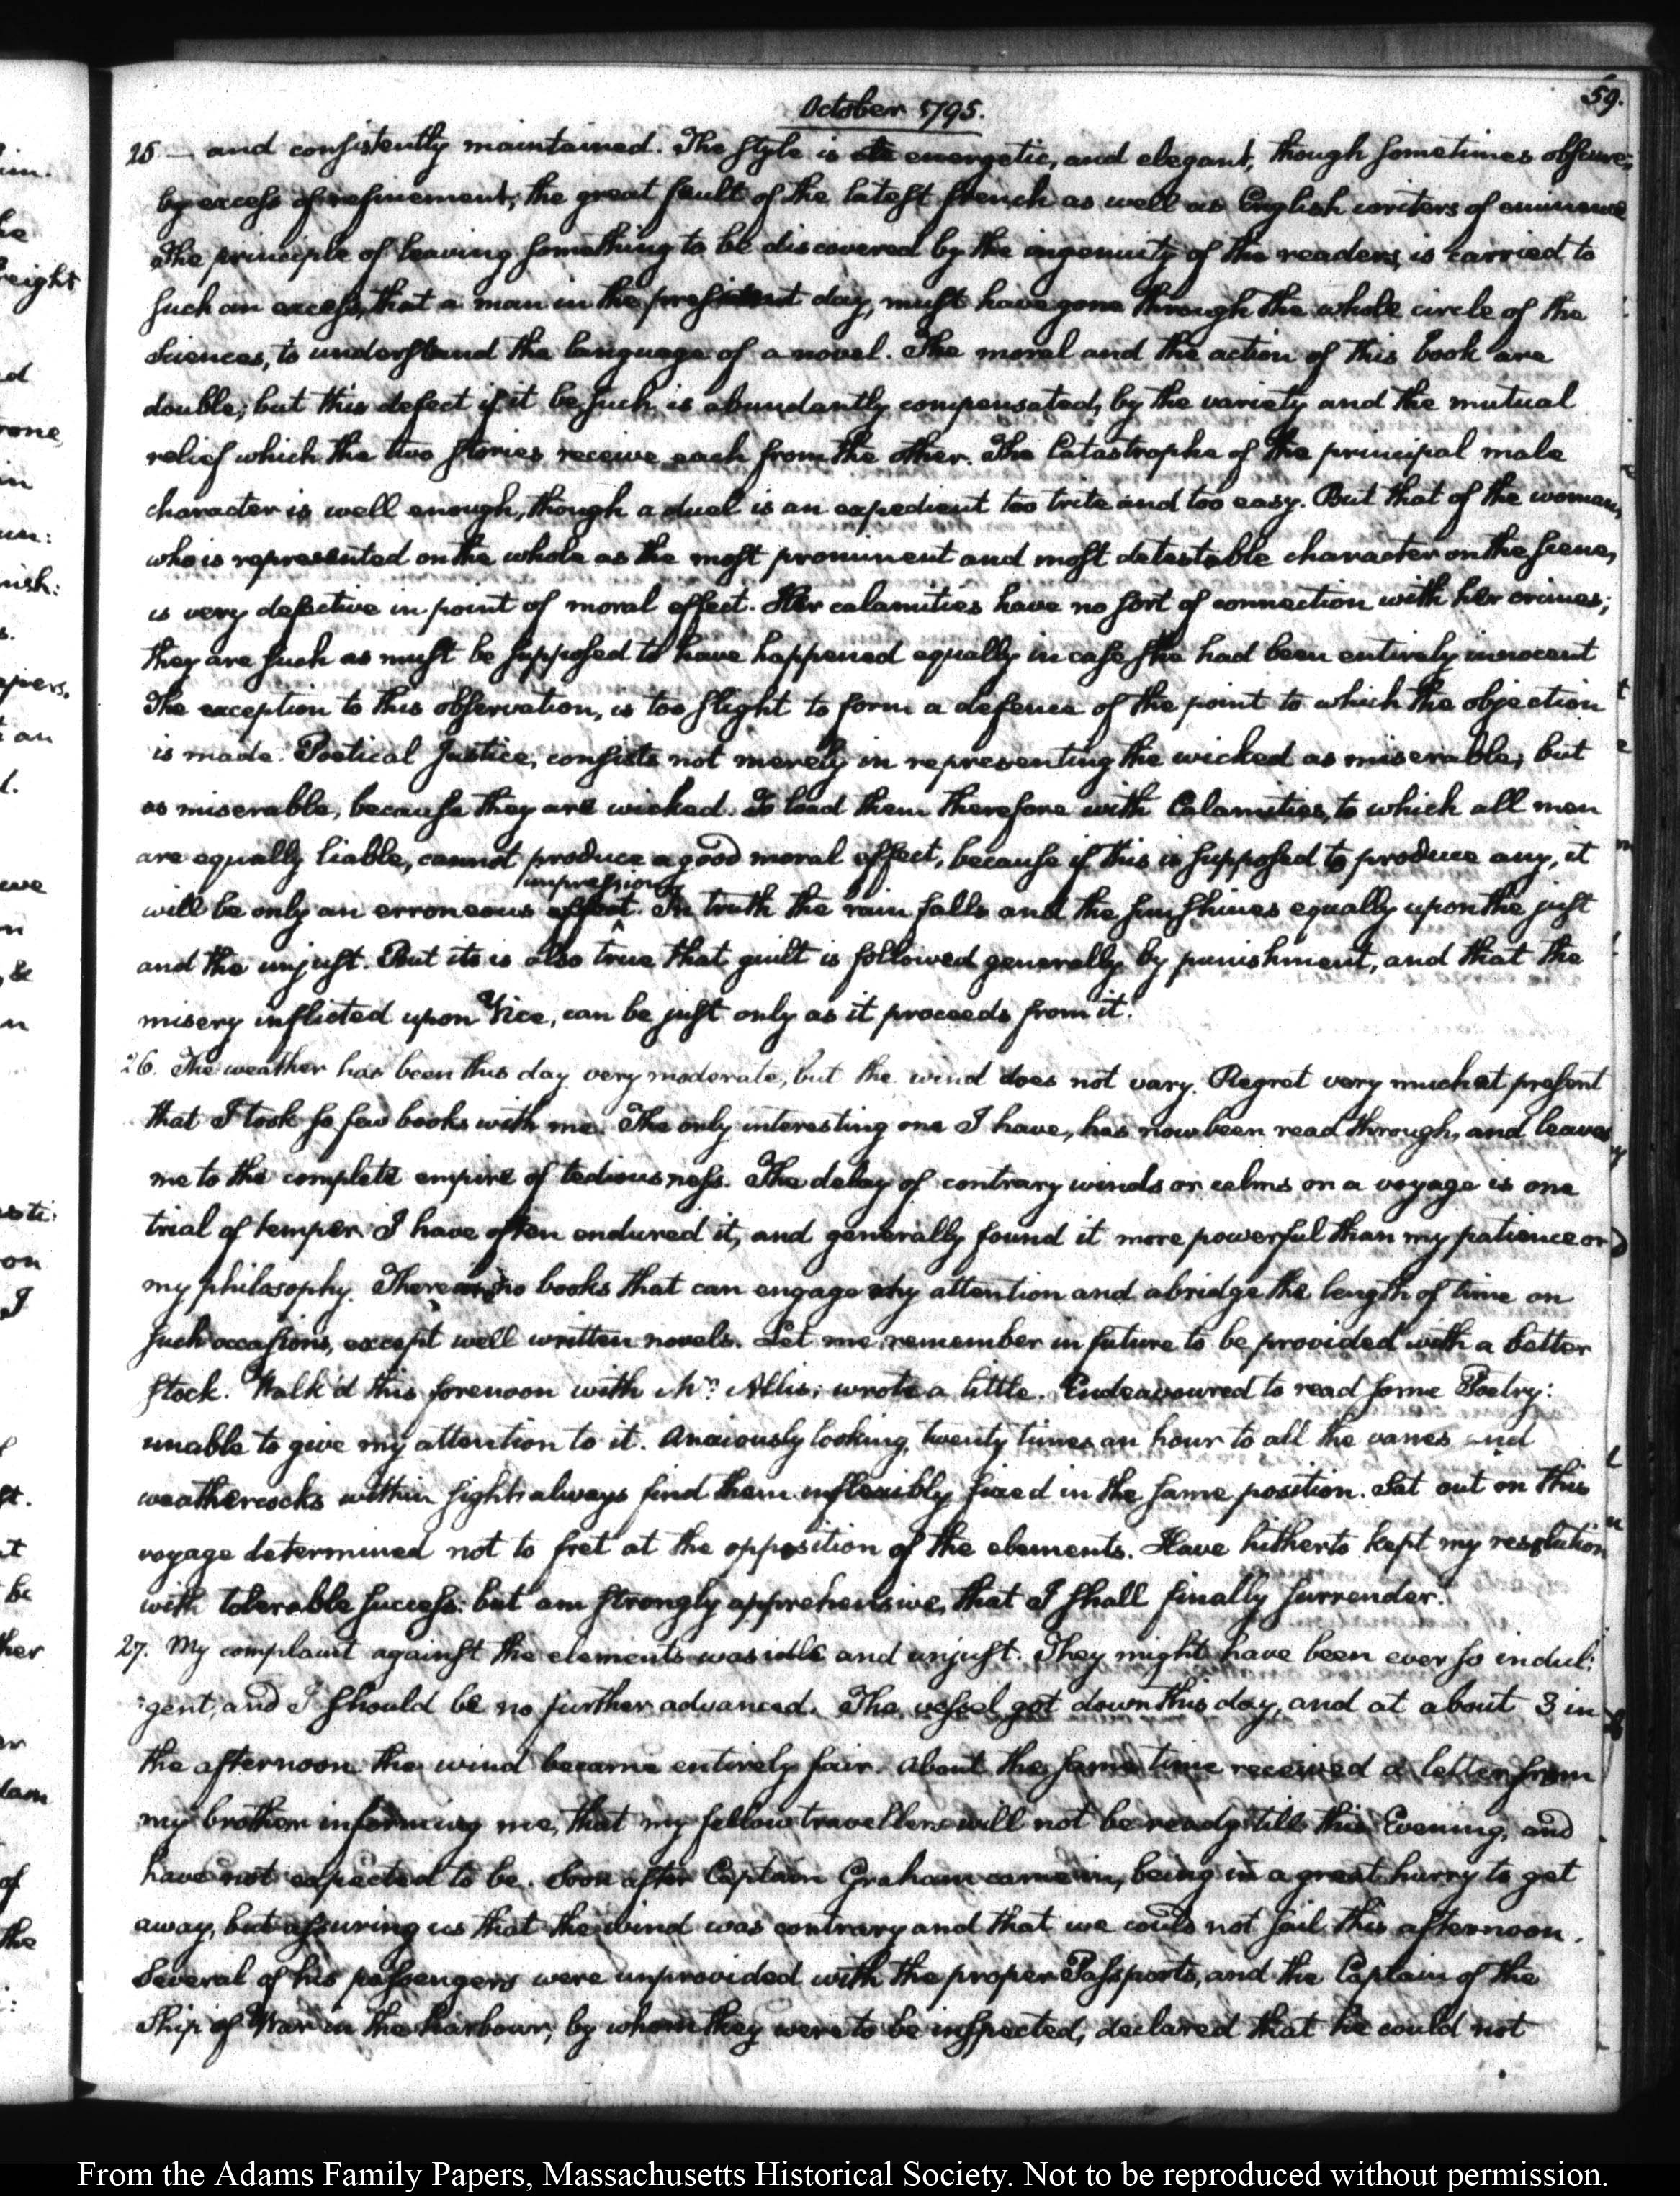 59.
October 1795.
25 — and consistently maintained. The style is energetic, and elegant, though sometimes obscure,
by excess of refinement; the great fault of the latest french as well as English writers of eminence
The principle of leaving something to be discovered by the ingenuity of the readers, is carried to
such an excess, that a man in the present day, must have gone through the whole circle of the
Sciences, to understand the language of a novel. The moral and the action of this book are
double; but this defect if it be such is abundantly compensated, by the variety and the mutual
relief which the two stories receive each from the other. The Catastrophe of the principal male
character is well enough, though a duel is an expedient too trite and too easy. But that of the woman,
who is represented on the whole as the most prominent and most detestable character on the scene,
is very defective in point of moral effect. Her calamities have no sort of connection with her crimes;
they are such as must be supposed to have happened equally in case she had been entirely innocent
The exception to this observation, is too slight to form a defence of the point to which the objection
is made. Poetical Justice, consists not merely in representing the wicked as miserable; but
as miserable, because they are wicked. To load them therefore with Calamities, to which all men
are equally liable, cannot produce a good moral effect, because if this is supposed to produce any, it
impression
will be only an erroneous effect. In truth the rain falls and the sun shines equally upon the just
and the unjust. But its is also true that guilt is followed generally by punishment, and that the
misery inflicted upon Vice, can be just only as it proceeds from it.
26. The weather has been this day very moderate, but the wind does not vary. Regret very much at present
that I took so few books with me. The only interesting one I have, has now been read through, and leaves
me to the complete empire of tediousness. The delay of contrary winds or calms on a voyage is one
trial of temper. I have often endured it, and generally found it more powerful than my patience or
my philosophy. There are no books that can engage my attention and abridge the length of time on
such occasions, except well written novels. Let me remember in future to be provided with a better
stock. Walk'd this forenoon with Mr: Allis; wrote a little. Endeavoured to read some Poetry:
unable to give my attention to it. Anxiously looking, twenty times an hour to all the vanes and
weathercocks within sight always find them inflexibly fixed in the same position. Sat out on this
voyage determined not to fret at the opposition of the elements. Have hitherto kept my resolution
with tolerable success: but am strongly apprehensive, that I shall finally surrender.
27. My complaint against the elements was idle and unjust. They might have been ever so indul:
:gent, and I should be no further advanced. The vessel got down this day, and at about 3 in
the afternoon the wind became entirely fair. About the same time received a letter from
my brother informing me, that my fellow travellers will not be ready till this Evening, and
have not expected to be. Soon after Captain Graham came in, being in a great hurry to get
away, but assuring us that the wind was contrary and that we could not sail this afternoon.
Several of his passengers were unprovided with the proper Passports, and the Captain of the
Ship of War in the harbour, by whom they were to be inspected, declared that he could not
From the Adams Family Papers, Massachusetts Historical Society. Not to be reproduced without permission.